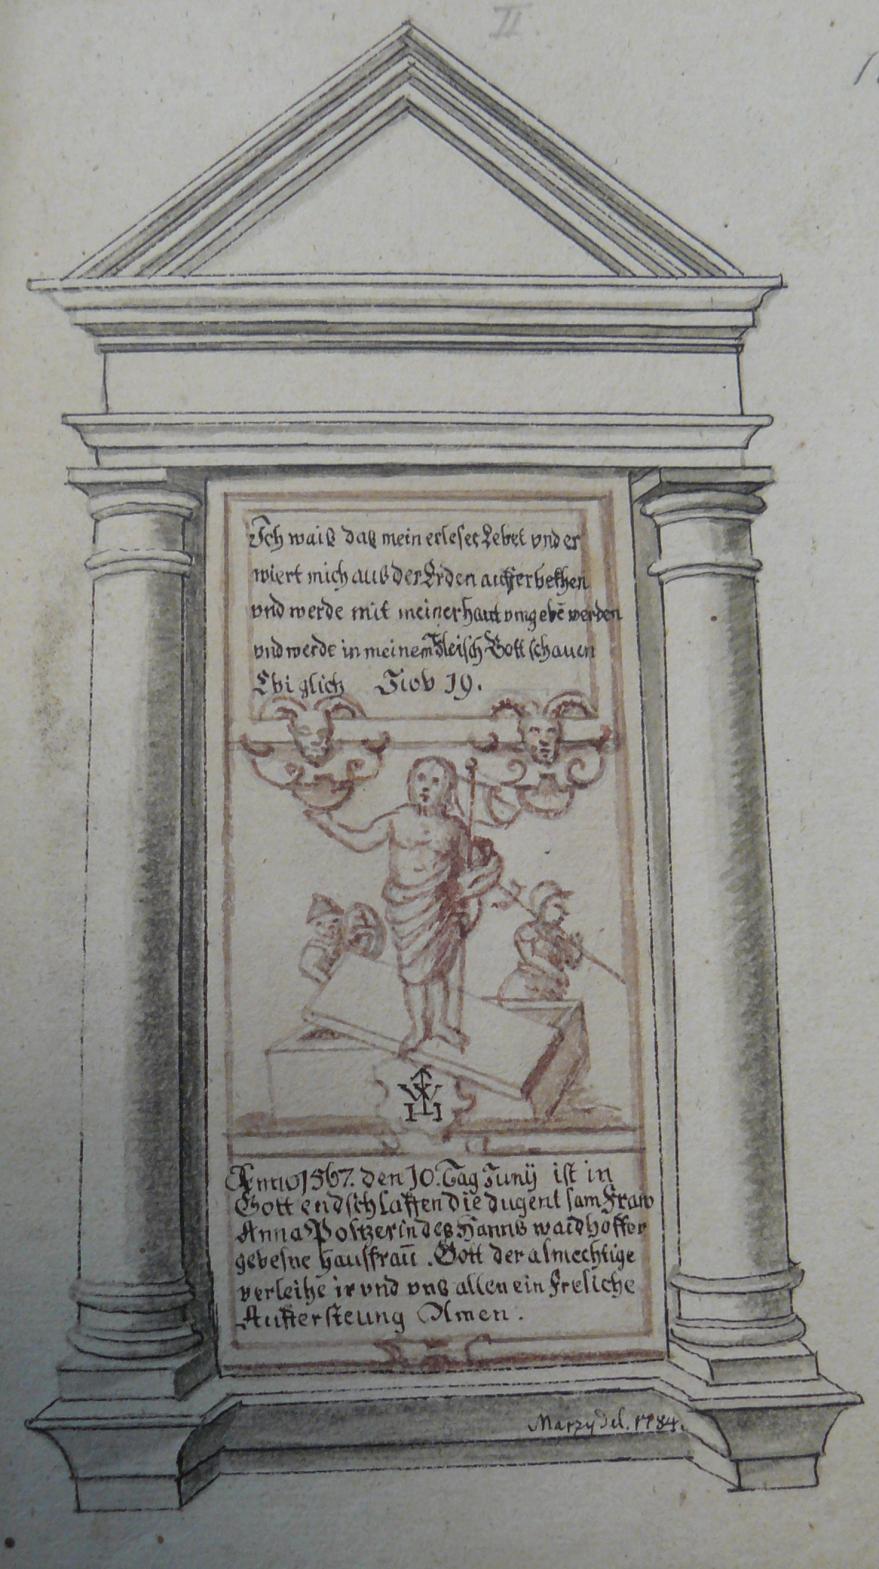 II.
Ich waiß daß mein erleser Lebet vnd er
wiert mich aus der Erden aufferbekhen
vnd werde mit meiner haut vmgebē werden
vnd werde in meinem Fleisch Gott schauen
Ebiglich Jiob 19.
Anno 1567. den 10. Tag Junÿ ist in
Gott endschlaffen die dugent sam Fraw
Anna Poltzerin des Hanns waidhoffer
gebesne hausfraū. Gott der almechtige
verleihe ir vnd vns allen ein Freliche
Auffersteung Amen.
Marzy del. 1784.